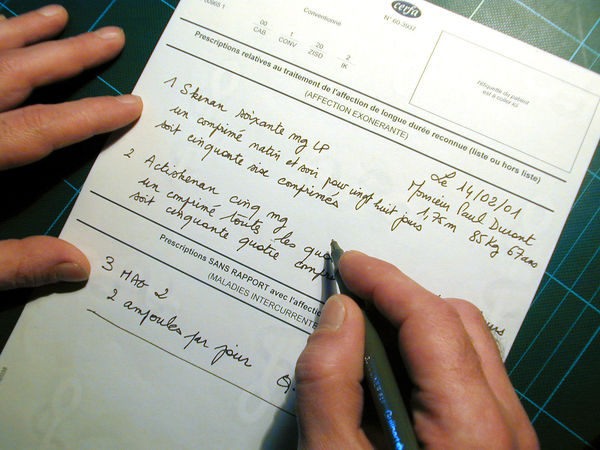 00965 1
Conventionné
cerfa
N° 60-3937
00 1 20 2
CAB CONV ZISD IK
étiquette du patient
est à coller ici
Prescriptions relatives au traitement de l'affection de longue durée reconnue (liste ou hors liste)
(AFFECTION EXONERANTE)
Le 14/02/01
Monsieur Paul Durant
1,75m 85Kg 67 ans
1 Skenan soixante mg LP
un comprimé matin et soir pour vingt huit jours
soit cinquante six comprimés
2 Actiskenan cinq mg
un comprimé toutes les
soit cinquante quatre
Prescriptions SANS RAPPORT avec l'affection
(MALADIES INTERCURRENTE
3 MAG 2
2 ampoules par jour